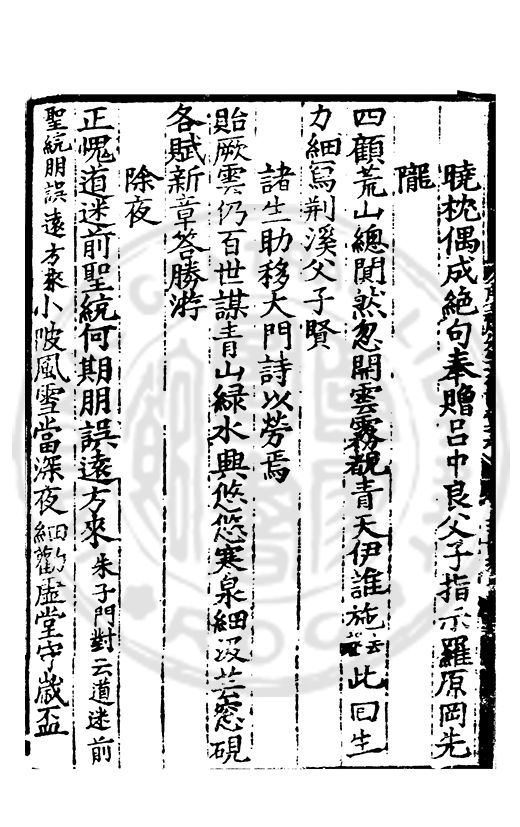 曉枕偶成絶句奉贈呂中良父子指示羅原岡先
隴
四顧荒山總閴然忽開雲霧覩青天伊誰施此回生
力細寫荆溪父子賢
諸生助移大門詩以勞焉
貽厥雲仍百世謀青山緑水興悠悠寒泉細汲芸窓硯
各賦新章答勝游
除夜
正愧道迷前聖統何期朋誤遠方來朱子門對云道迷前
聖統朋誤遠方來小陂風雪當深夜細勸虛堂守歲盃